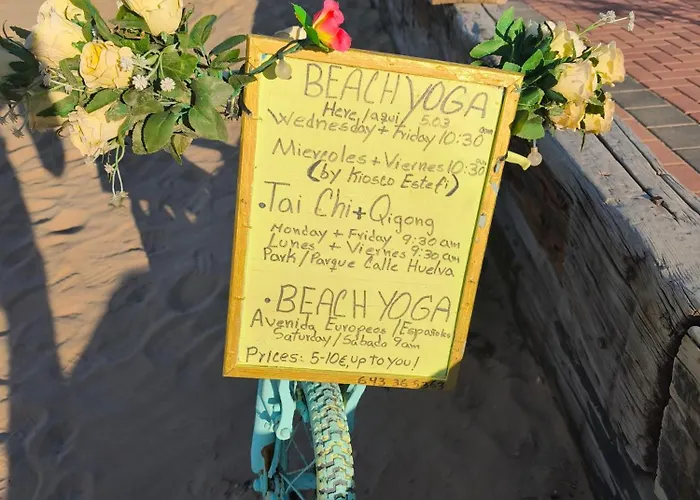 BEACH YOGA
Here/aquí 5.03
Wednesday + Friday 10:30 am
Miercoles + Viernes 10:30 am
(by Kiosco Estefi)
• Tai Chi + Qigong
Monday + Friday 9:30 am
Lunes + Viernes 9:30 am
Park/Parque Calle Huelva
• BEACH YOGA
Avenida Europeos/Españoles
Saturday/Sábado 9am
Prices: 5-10€, up to you!
643 36